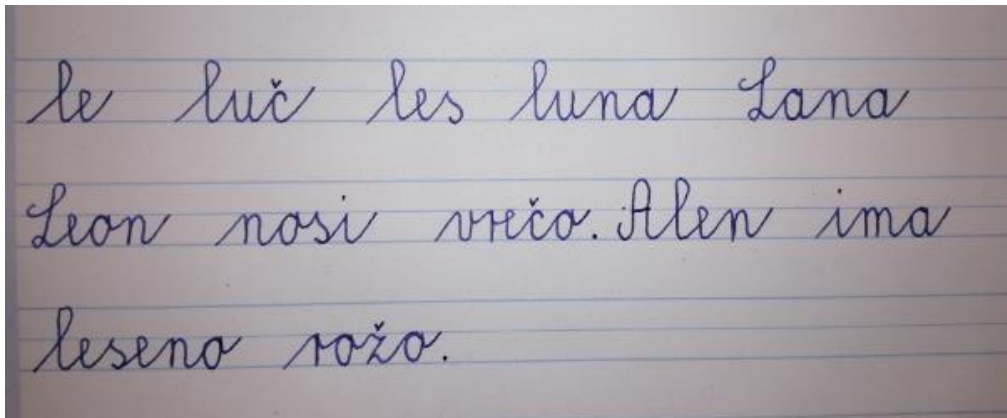 le luč les luna Lana
Leon nosi vrečo. Alen ima
leseno rožo.